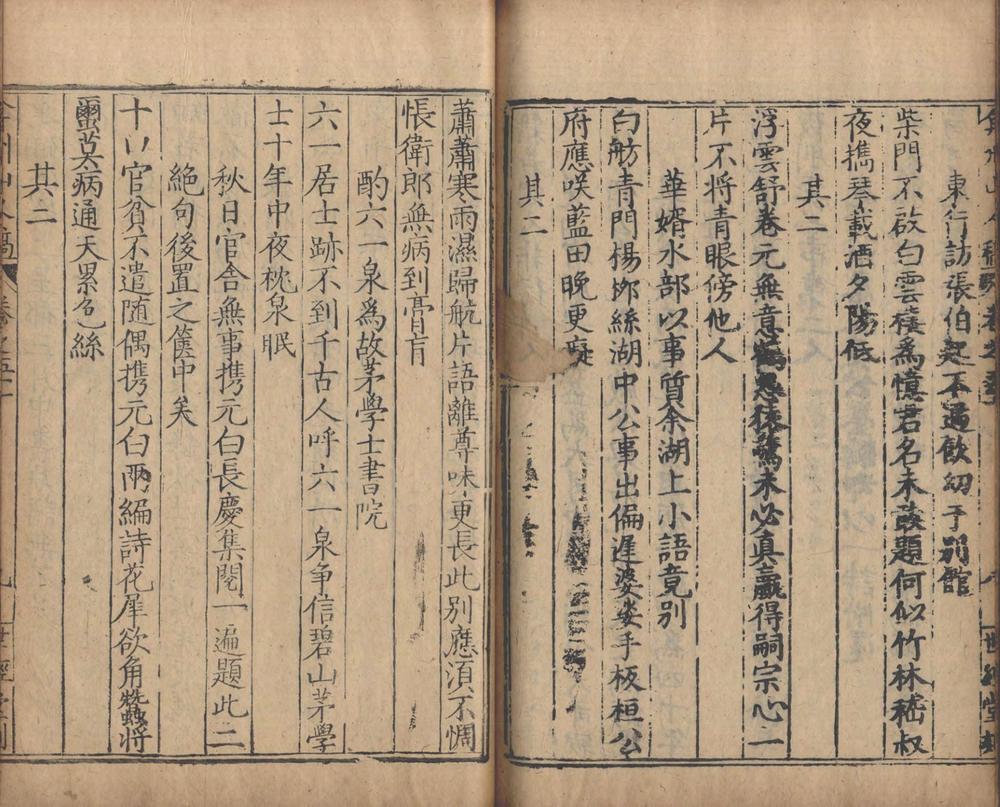 東行訪張伯起不過飲幼于別館
柴門不啟白雲棲為憶君名未敢題何似竹林嵇叔
夜攜琴載酒夕陽低
其二
浮雲舒卷元無意鶴怨猿驚未必真贏得嗣宗心一
片不將青眼傍他人
華婿水部以事質余湖上小語竟別
白舫青門楊栁絲湖中公事出偏遲婆娑手板桓公
府應咲藍田晚更癡
其二
蕭蕭寒雨濕歸航片語離尊味更長此別應須不惆
悵衛郎無病到膏肓
酌六一泉爲故茅學士書院
六一居士跡不到千古人呼六一泉争信碧山茅學
士十年中夜枕泉眠
秋日官舍無事携元白長慶集閱一遍題此二
絶句後置之篋中矣
十以官貧不遣随偶携元白兩編詩花犀欲角蠶將
璽病通天累色絲
其二
世經堂刻